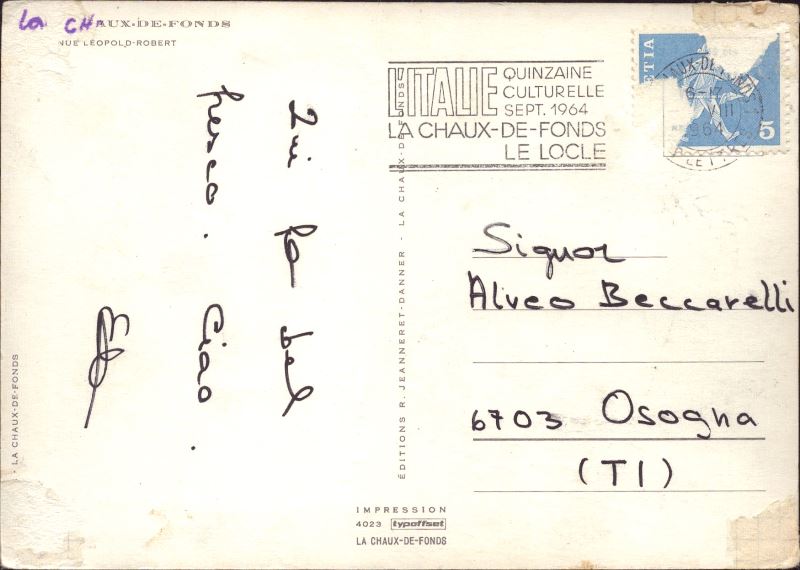 La CHAUX-DE-FONDS
NUE LÉOPOLD-ROBERT
Qui fa bel
fresco.
Ciao.
- LA CHAUX-DE-FONDS
ÉDITIONS R. JEANNERET-DANNER - LA CHAUX-DE-FONDS
L'ITALIE
QUINZAINE
CULTURELLE
SEPT. 1964
LA CHAUX-DE-FONDS
LE LOCLE
ETIA
AUX-DE-FONDS
6-17
VIII
964
5
Signor
Alveo Beccarelli
6703 Osogna
(TI)
IMPRESSION
4023 typoffset
LA CHAUX-DE-FONDS